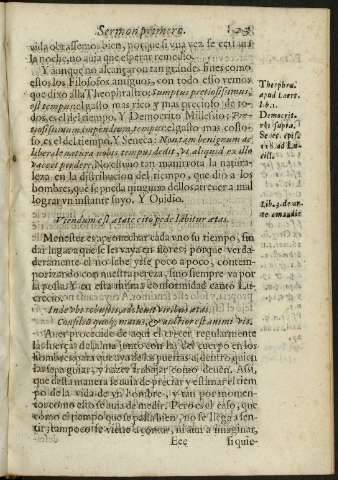 Sermon primero.
vida obrassemos bien, porque si vna vez se cerrara
la noche, no aura que esperar remedio.
Y aunque no alcançaron tan grandes fines como
estos, los Filosofos antiguos, con todo esso vemos
que dixo allà Theophrastro: Sumptus pretiosissimus,
est tempus: el gasto mas rico y mas precioso de to-
dos, es el del tiempo. Y Democrito Millesio: Pre-
tiosissimum impendium tempus: el gasto mas costo-
so, es el del tiempo. Y Seneca: Non tam benignum ac
liberale natura nobis tempus dedit, vt aliquid ex illo
vacet perdere. No estuuo tan manirota la natura-
leza en la distribucion del tiempo, que dio a los
hombres, que se pueda ninguno dellos atreuer a mal
lograr vn instante suyo. Y Ouidio.
Theophra.
apud Laert.
lib.1.
Democrit.
vbi supra.
Senec. epist
ad Lu-
cill.
Lib. 3. de ar-
te amandi
Vtendum est ætate cito pede labitur ætas.
Menester es aprouechar cada vno su tiempo, sin
dar lugar a que se les vaya en flores; porque verda-
deramente el no sabe yrse poco a poco, contem-
porizando con nuestra pereza, sino siempre va por
la posta. Y en esta misma conformidad cantò Lu-
crecio.
Inde vbi robustis adoleuit viribus ætas.
Consilium quoque maius, & auctior est animi vis.
A esse procede de aqui el crecer regularmente
las fuerças del alma junto con las del cuerpo en los
hombres, para que aya de las puertas a dentro quien
las sepa guiar, y hazer trabajar como deuen. Assi,
que desta manera se aula de preciar y estimar el tiem
po de la vida de vn hombre, y tan por momen-
tos como esto se auia de medir. Pero es el caso, que
como el tiempo que se passa bien, no se llega a sen-
tir, tampoco se viene a contar, ni aun a imaginar,
Eee
si quie-